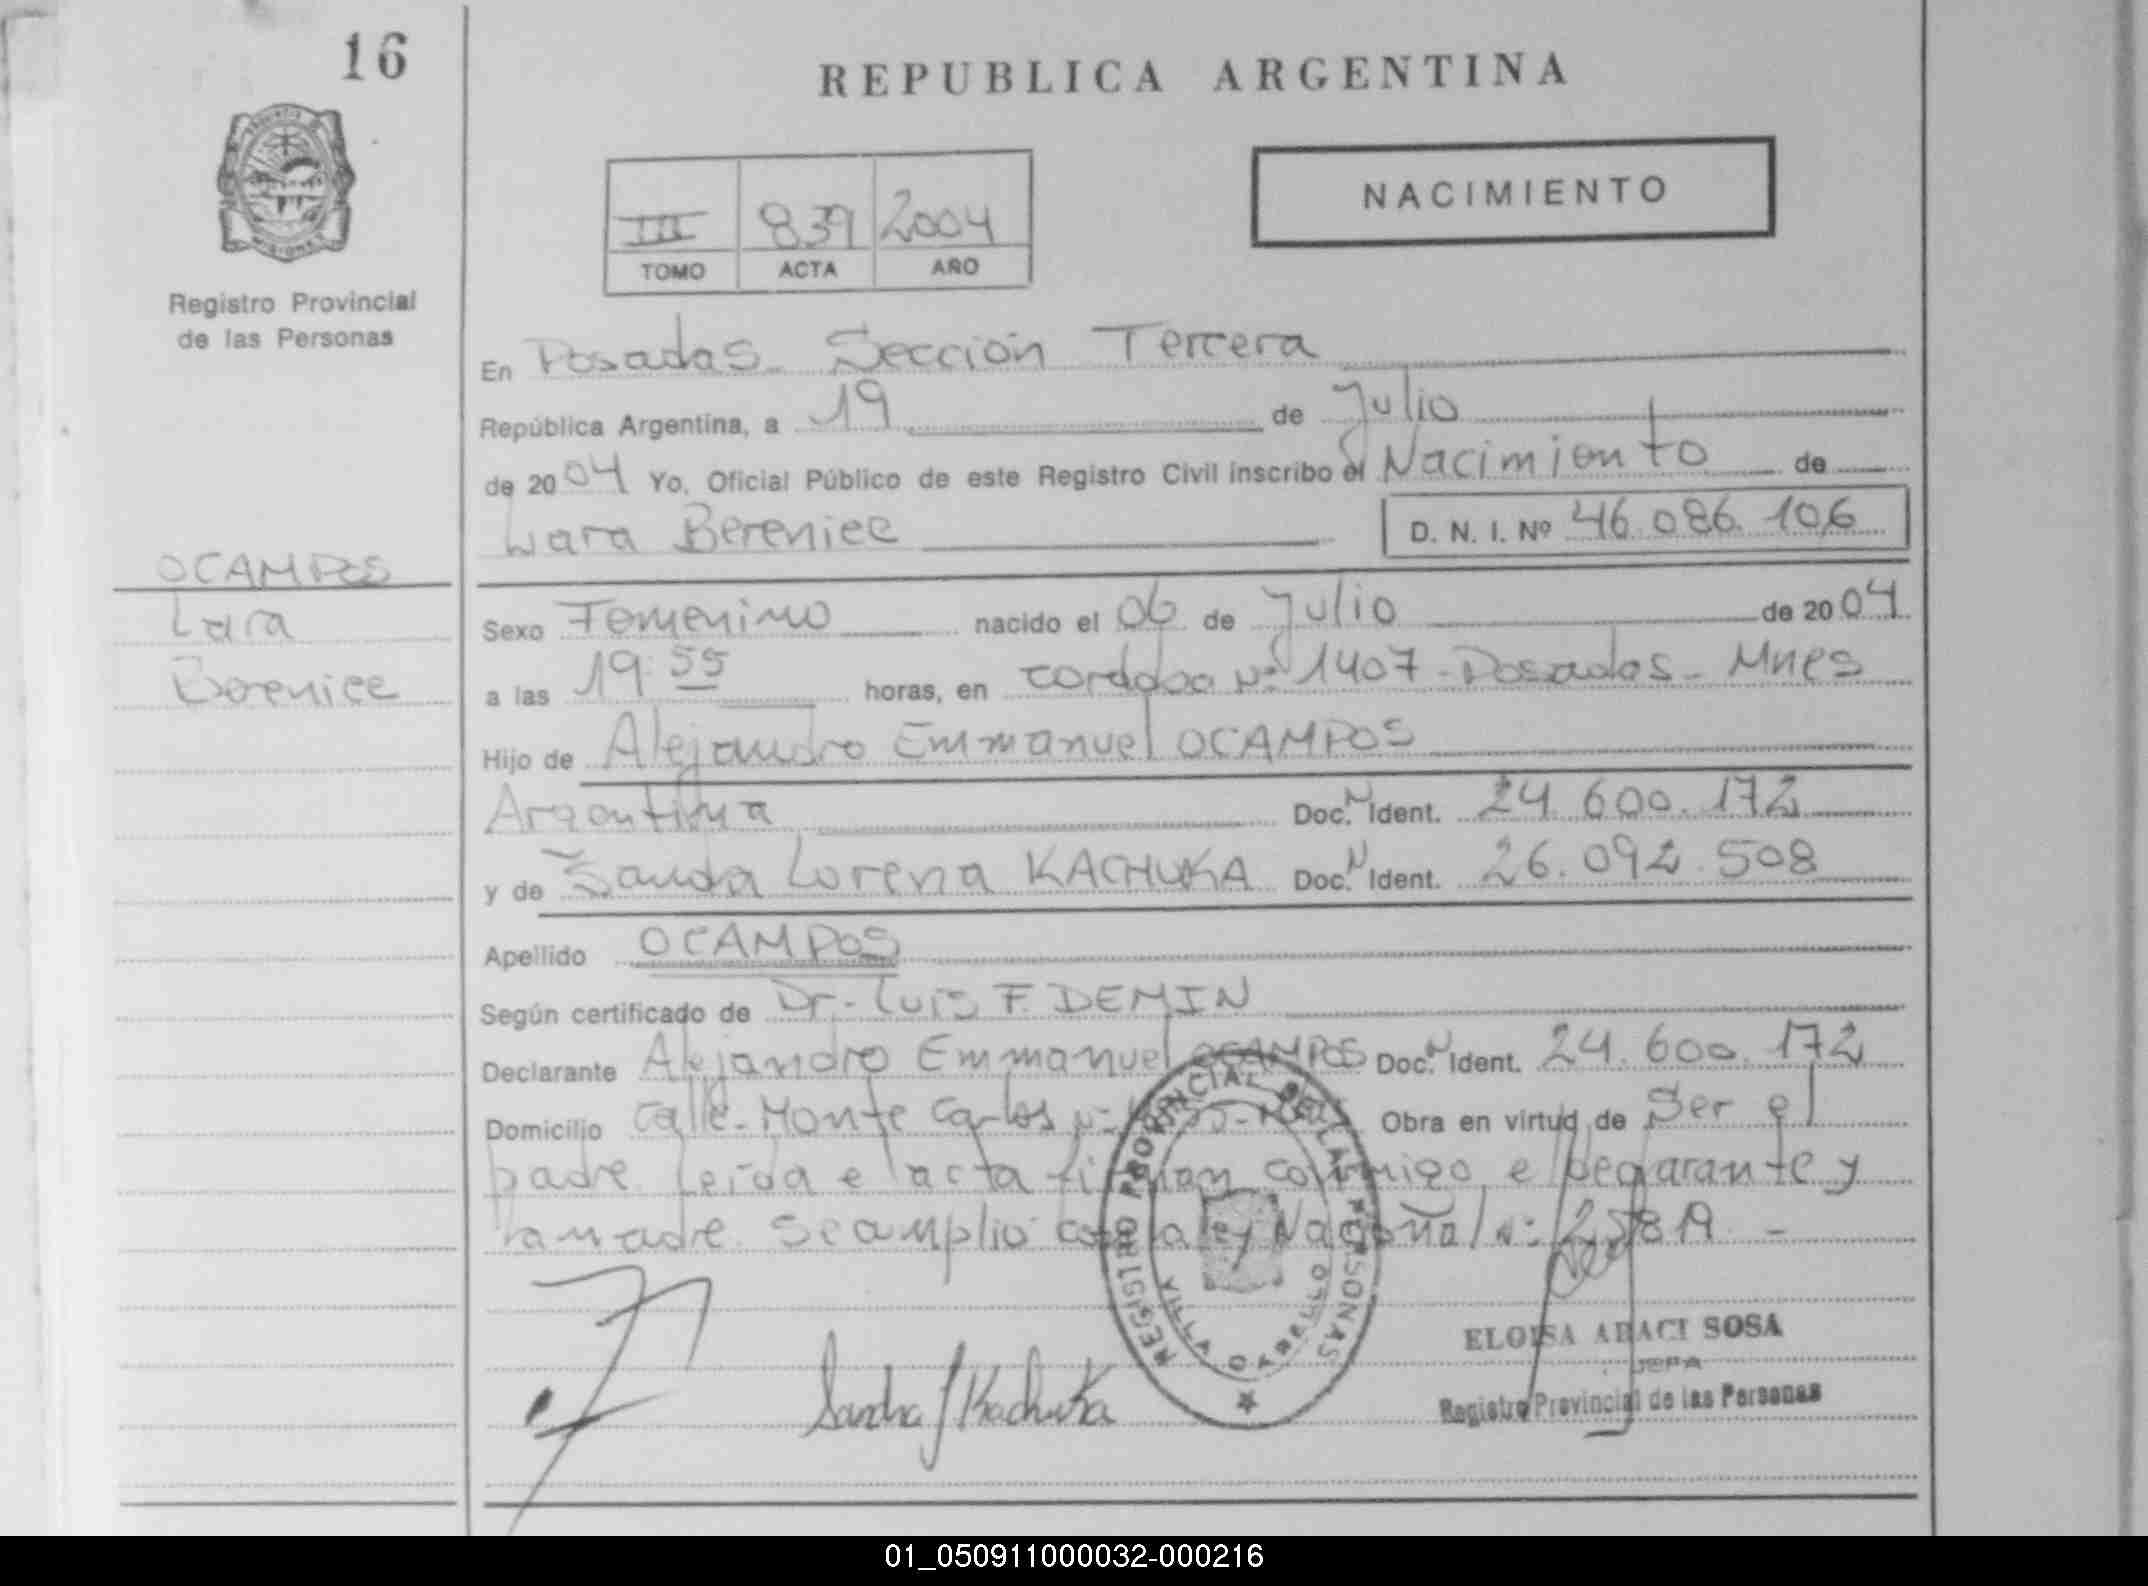 16
REPUBLICA ARGENTINA
NACIMIENTO
III 839 2004
TOMO ACTA AÑO
Registro Provincial
de las Personas
En Posadas - Sección Tercera
República Argentina, a 19 de Julio
de 2004 Yo, Oficial Público de este Registro Civil inscribo el Nacimiento de
Lara Berenice D. N. I. Nº 46.086.106
OCAMPOS
Lara
Berenice
Sexo Femenino nacido el 06 de Julio de 2004
a las 19:55 horas, en Cordoba Nº 1407 - Posadas - Mnes
Hijo de Alejandro Emmanuel OCAMPOS
Argentina Doc. N Ident. 24.600.172
y de Sandra Lorena KACHUKA Doc. N Ident. 26.092.508
Apellido OCAMPOS
Según certificado de Dr. Luis F. DEMIN
Declarante Alejandro Emmanuel OCAMPOS Doc. N Ident. 24.600.172
Domicilio Calle - Monte Carlos Nº Obra en virtud de Ser el
padre. Leída el acta firman conmigo el declarante y
la madre. Se amplio con la ley Nacional Nº: 25819 -
REGISTRO PROVINCIAL DE LAS PERSONAS
VILLA
Sandra Kachuka
ELOISA ABACI SOSA
JEFA
Registro Provincial de las Personas
01_050911000032-000216